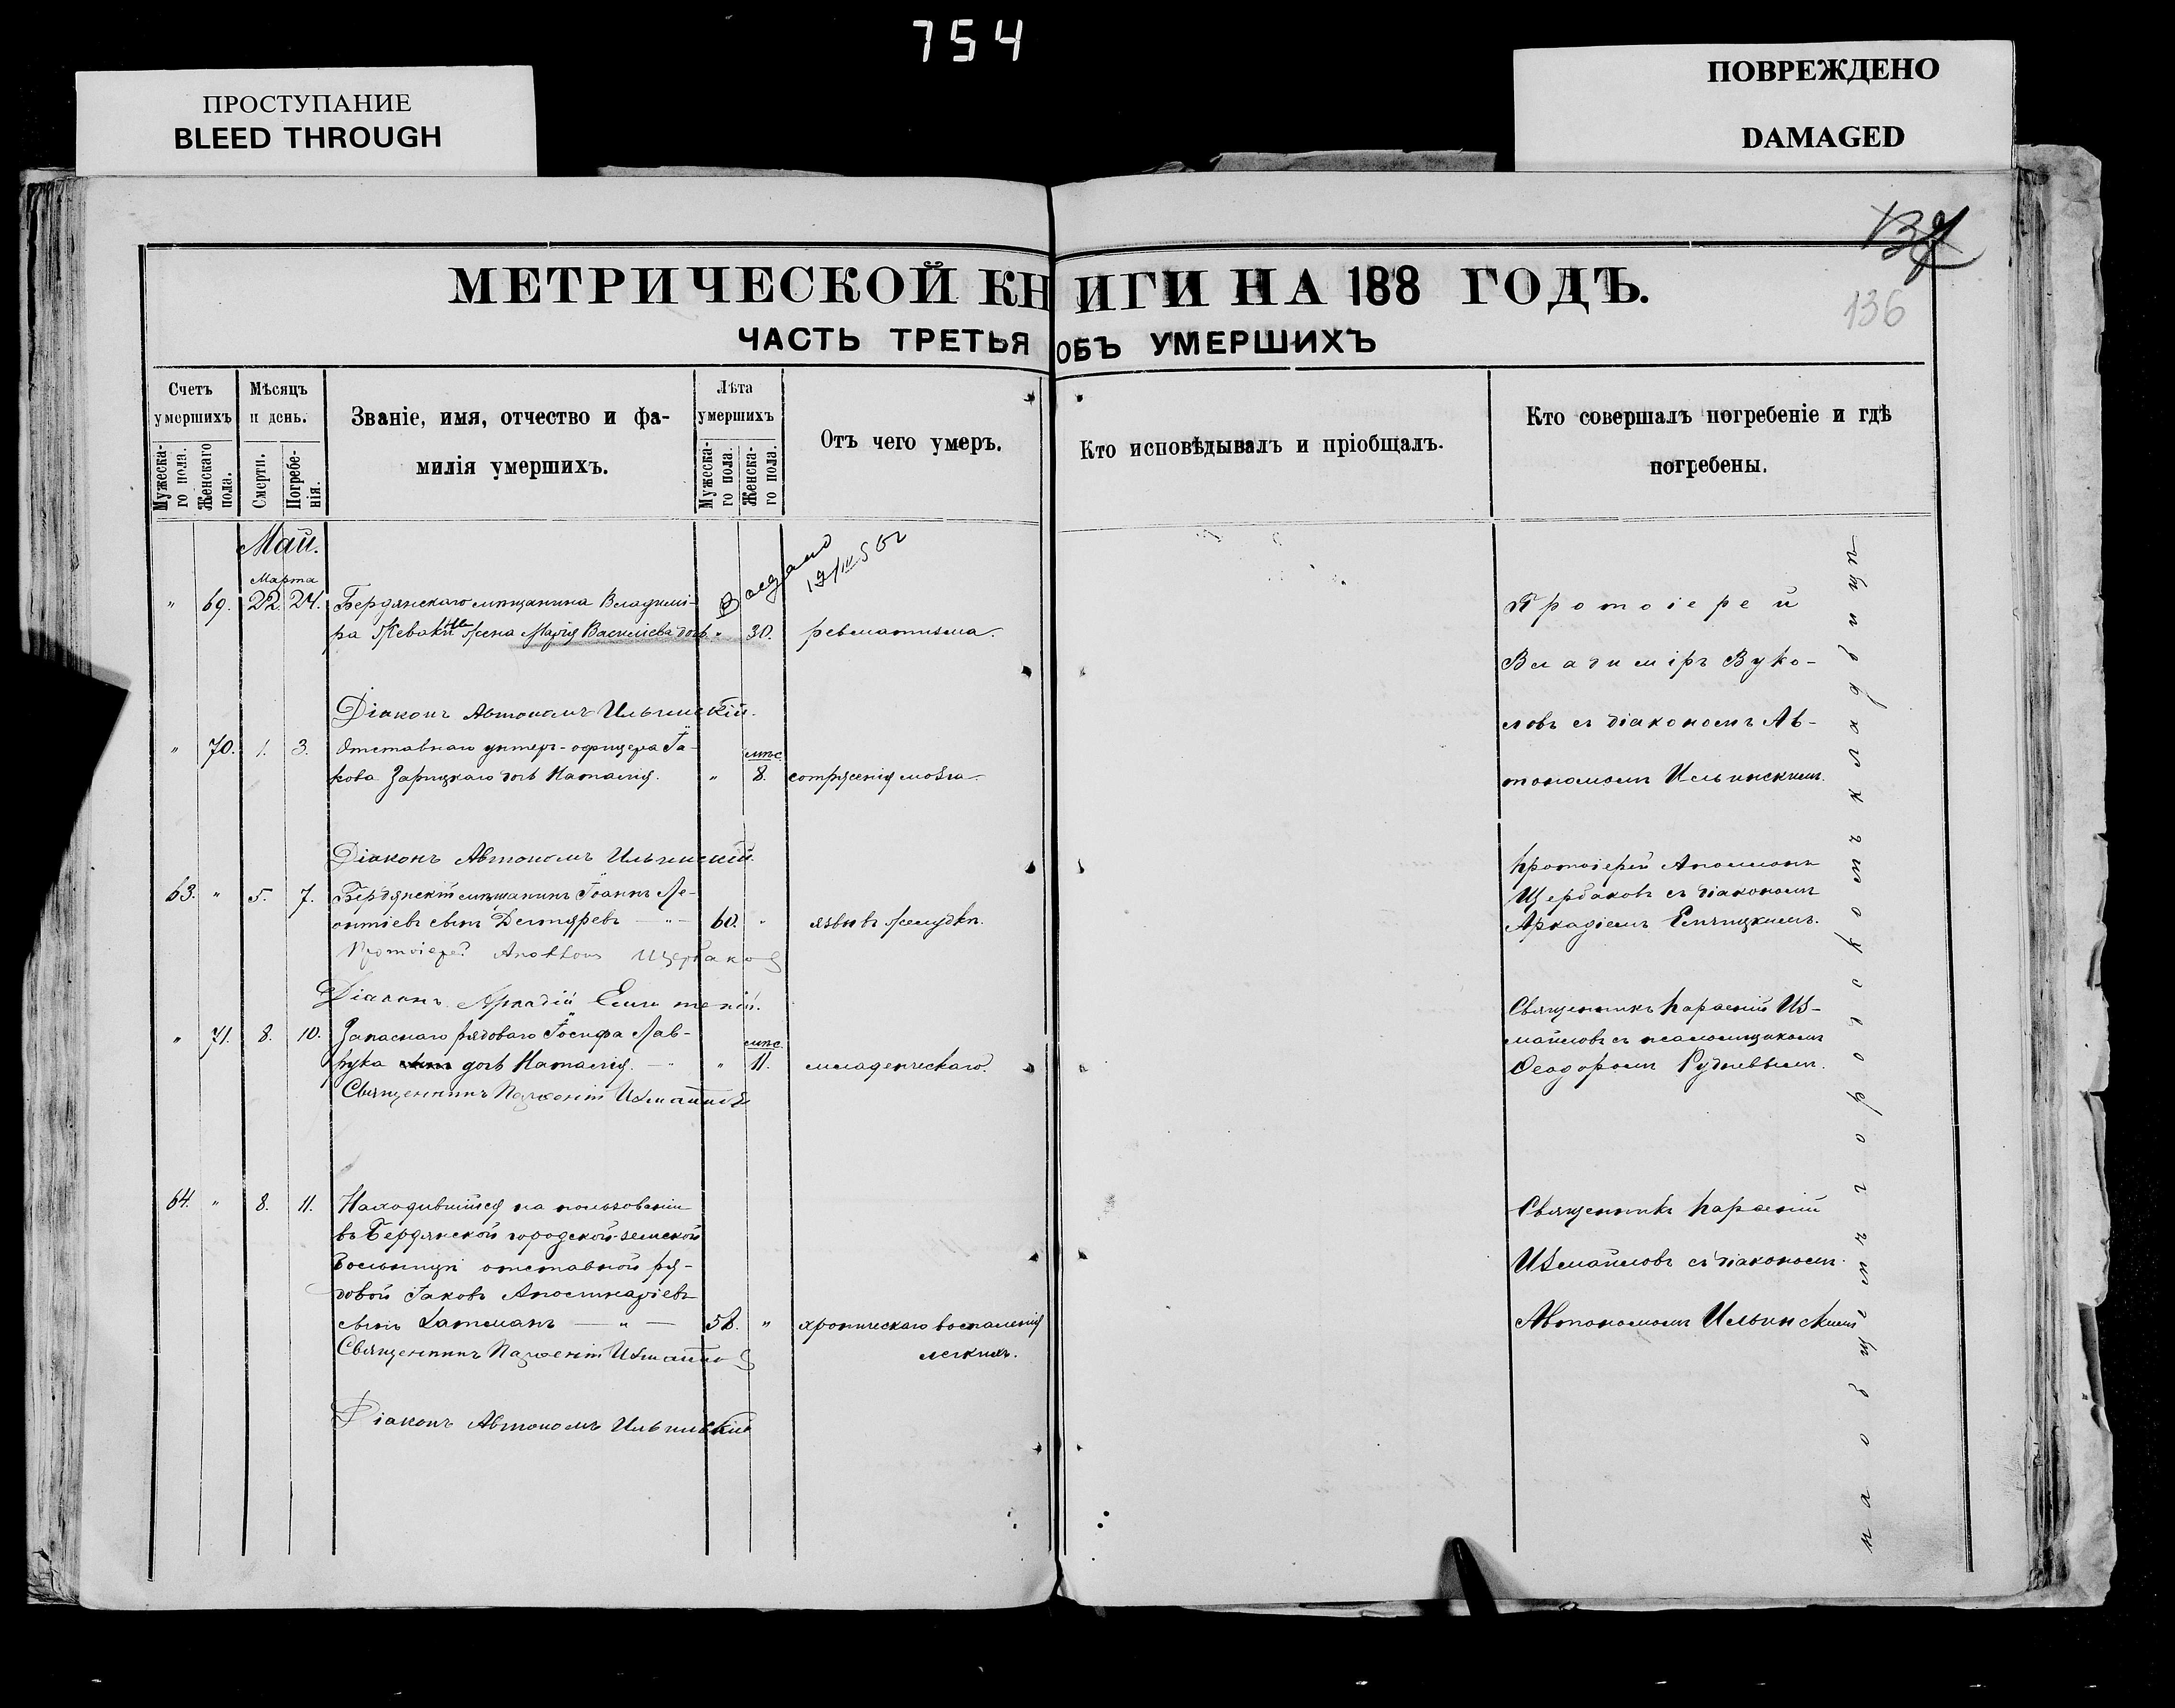 754
ПРОСТУПАНИЕ
BLEED THROUGH
ПОВРЕЖДЕНО
DAMAGED
136
МЕТРИЧЕСКОЙ КНИГИ НА 188 ГОДЪ.
ЧАСТЬ ТРЕТЬЯ ОБЪ УМЕРШИХЪ
Счетъ умершихъ
Мужеска-го пола.
Женскаго пола.
Мѣсяцъ и день.
Смерти.
Погребе-нія.
Званіе, имя, отчество и фа-
милія умершихъ.
Лѣта умершихъ
Мужеска-го пола.
Женска-го пола.
Отъ чего умеръ.
Кто исповѣдывалъ и пріобщалъ.
Кто совершалъ погребеніе и гдѣ
погребены.
Май.
Марта
" 69. 22. 24. Бердянскаго мѣщанина Владимі-
ра жена Марія Васильева дочь " 30. ревматизма.
Протоіерей
Владиміръ Вуко-
ловъ съ діакономъ Ав-
тономомъ Ильинскимъ.
Діаконъ Автономъ Ильинскій.
" 70. 1. 3. Отставнаго унтеръ-офицера Іа-
кова Зарицкаго дочь Наталія. " мѣс. 8. сотрясенія мозга
Діаконъ Автономъ Ильинскій.
63. " 5. 7. Бердянскій мѣщанинъ Іоаннъ Ле-
онтіевъ сынъ Дехтяревъ — " — 60. " язвы въ желудкѣ.
Протоіерей Аполлонъ
Щербаковъ съ діакономъ
Аркадіемъ
Протоіерей Аполлонъ Щербаковъ
Діаконъ Аркадій
" 71. 8. 10. Запаснаго рядоваго Іосифа Лав-
рука дочь Наталія. — " " мѣс. 11. младенческаго.
Священникъ Парѳеній Из-
майловъ съ псаломщикомъ
Ѳеодоромъ Рудневымъ.
Священникъ Парѳеній Измайловъ
64. " 8. 11. Находившійся на пользованіи
въ Бердянской городской земской
больницѣ отставной ря-
довой Іаковъ
сынъ — " — 58. " хроническаго воспаленія
легкихъ.
Священникъ Парѳеній
Измайловъ съ діакономъ
Автономомъ Ильинскимъ
Священникъ Парѳеній Измайловъ
Діаконъ Автономъ Ильинскій
на общемъ городскомъ кладбищѣ